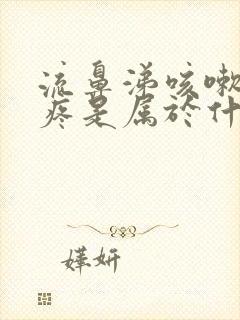 流鼻涕咳嗽
疼是属於什
嬅妍